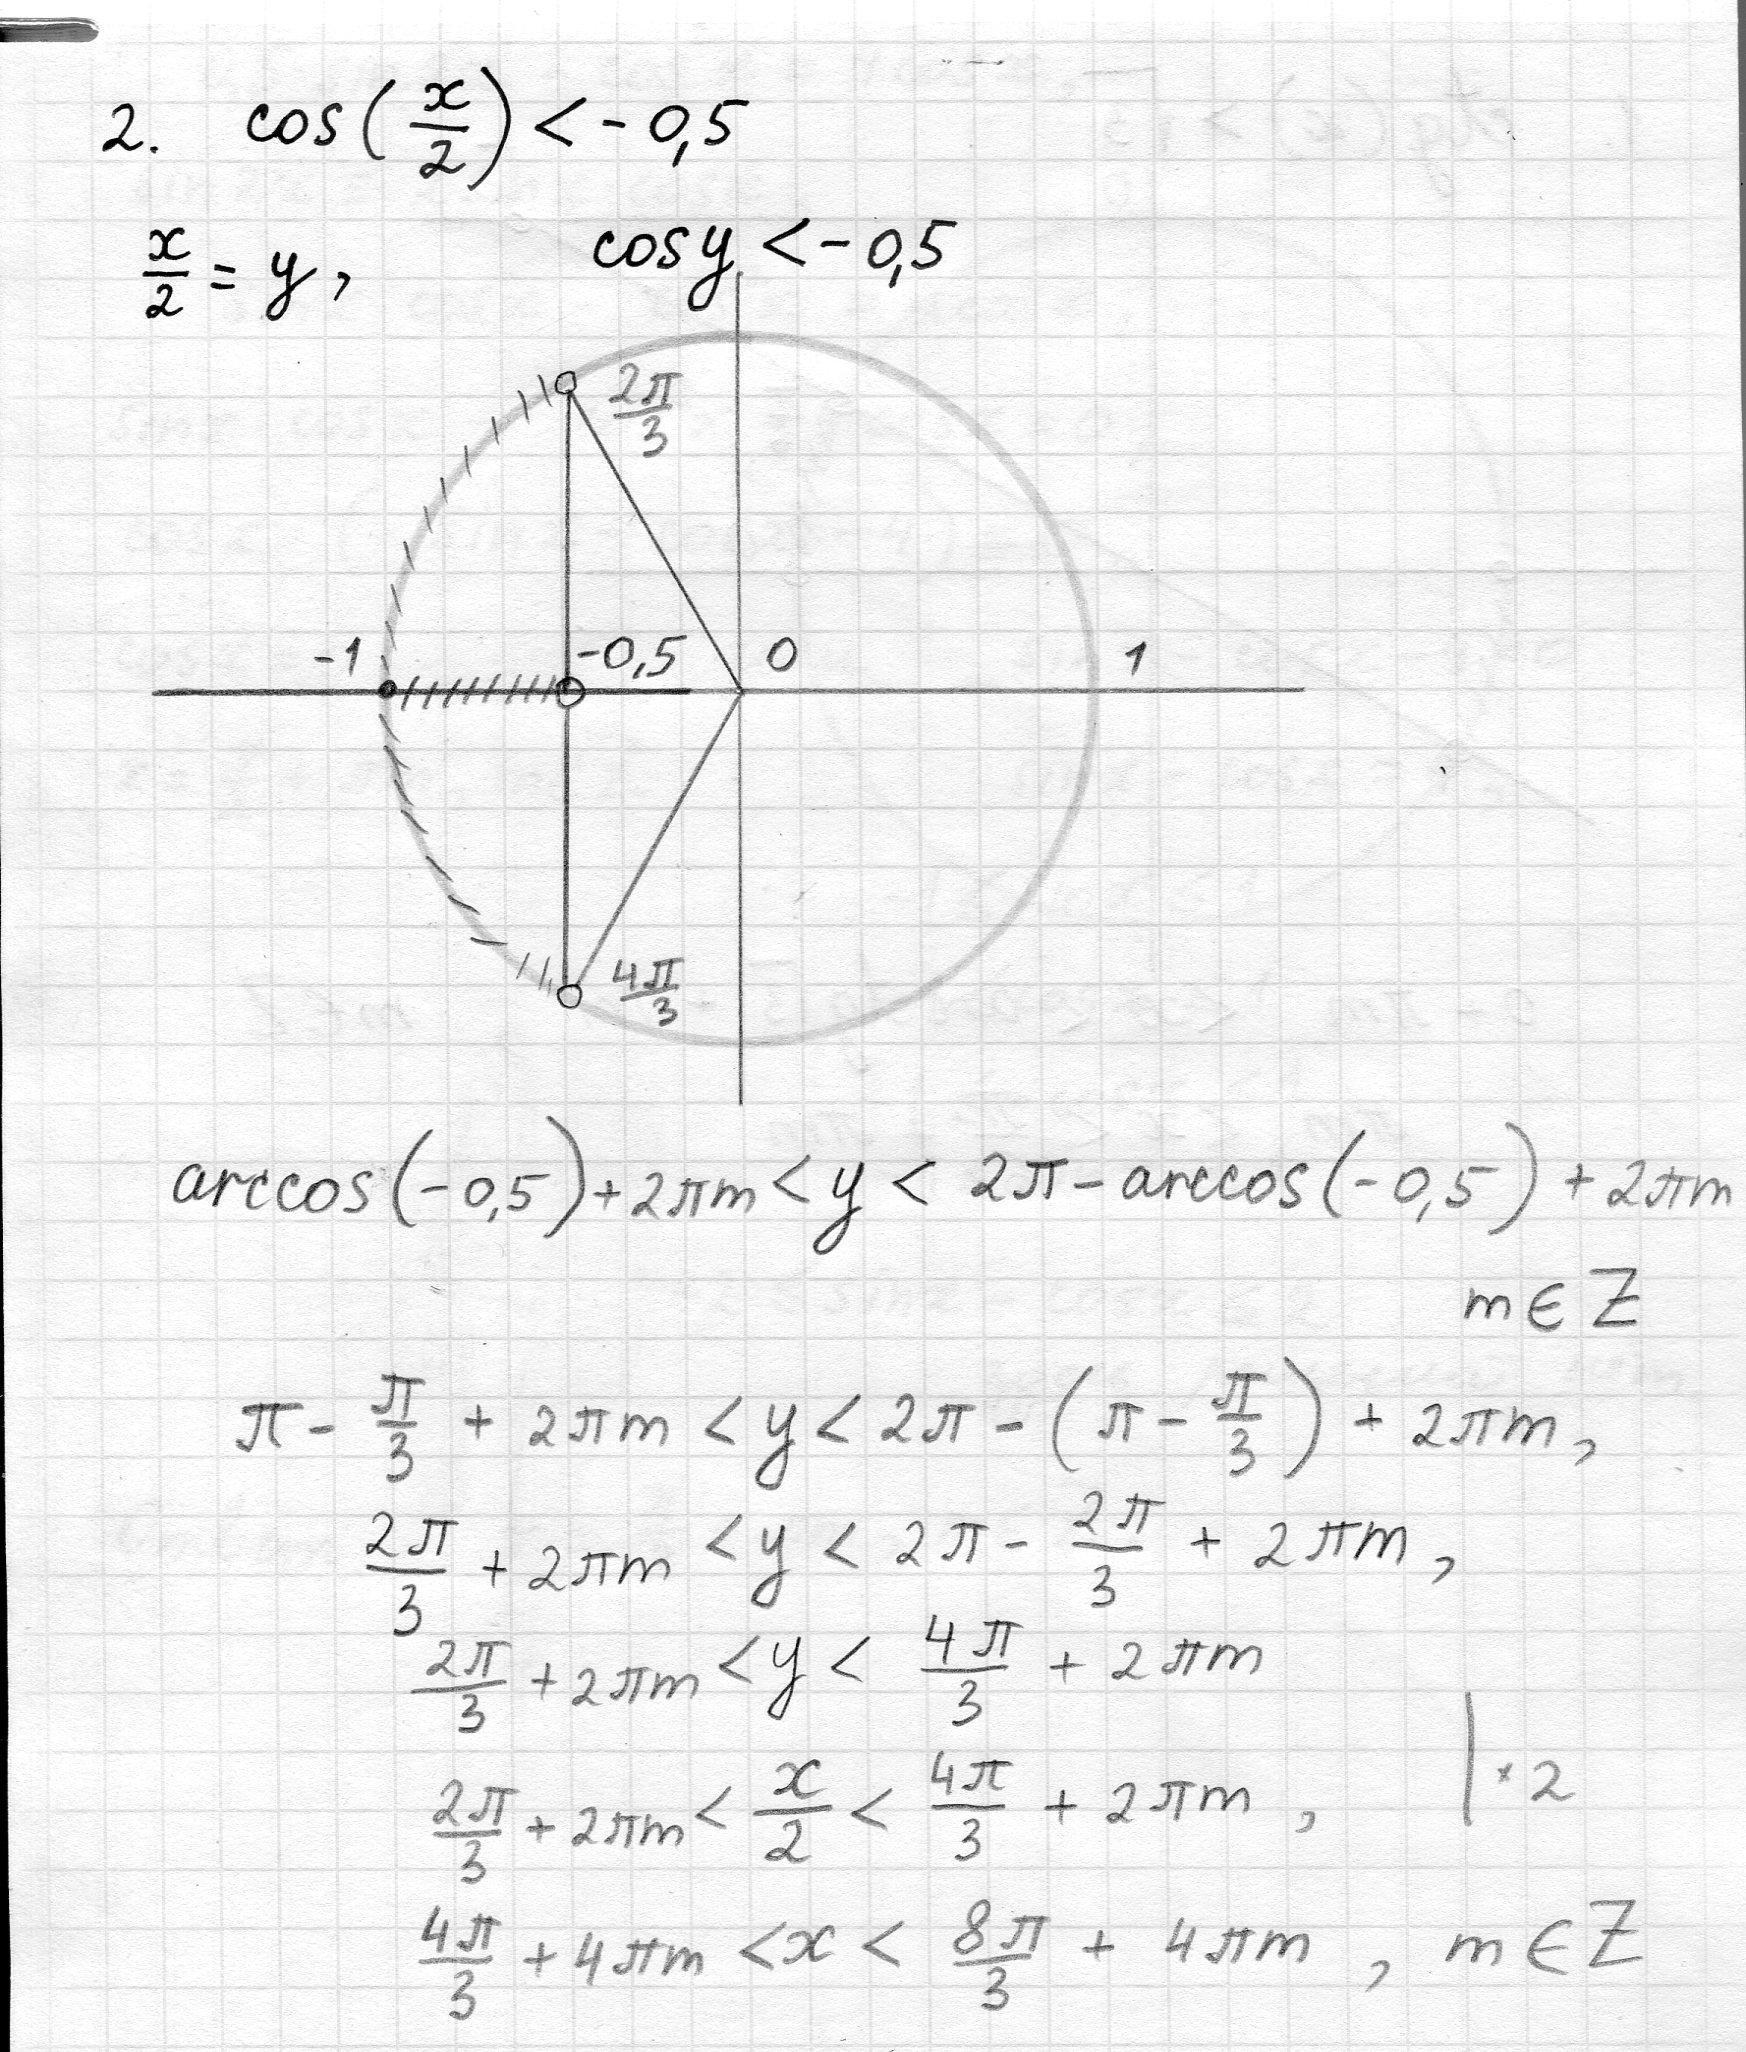 2. cos(x/2) < -0,5
x/2 = y, cos y < -0,5
2π/3
-1 -0,5 0 1
4π/3
arccos(-0,5) + 2πm < y < 2π - arccos(-0,5) + 2πm
m ∈ Z
π - π/3 + 2πm < y < 2π - (π - π/3) + 2πm,
2π/3 + 2πm < y < 2π - 2π/3 + 2πm,
2π/3 + 2πm < y < 4π/3 + 2πm
2π/3 + 2πm < x/2 < 4π/3 + 2πm, | · 2
4π/3 + 4πm < x < 8π/3 + 4πm, m ∈ Z